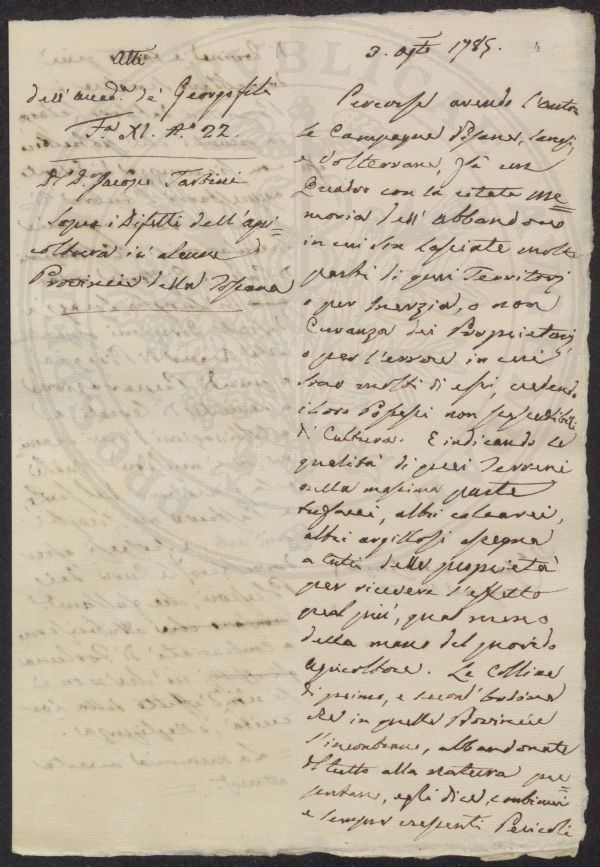 Atti
dell'accad.a de' Georgofili
Fa XI. No 22.
Di D. Jacopo Tartini
sopra i Difetti dell'agri=
coltura in alcune
Provincie della Toscana
3. Agto 1785.
Percorse avendo l'autore
le Campagne Pisane,
e Volterrane, fà un
Quadro con la citata Me=
moria dell'abbandono
in cui son lasciate molte
parti di quei Territorj
o per Inerzia, o non
Curanza dei Proprietarj,
o per l'errore in cui
sono molti di essi, credendo
i loro Possessi non suscettibili
di Cultura. E indicando le
qualità di quei Terreni
nella massima parte
tufacei, altri calcarei,
altri argillosi assegna
a tutti delle proprietà
per ricevere l'effetto
qual più, qual meno
della mano del provido
agricoltore. Le Colline
di primo, e second'ordine
che in quelle Provincie
s'incontrano, abbandonate
del tutto alla natura pre=
sentano, egli dice, continui
e sempre crescenti Pericoli